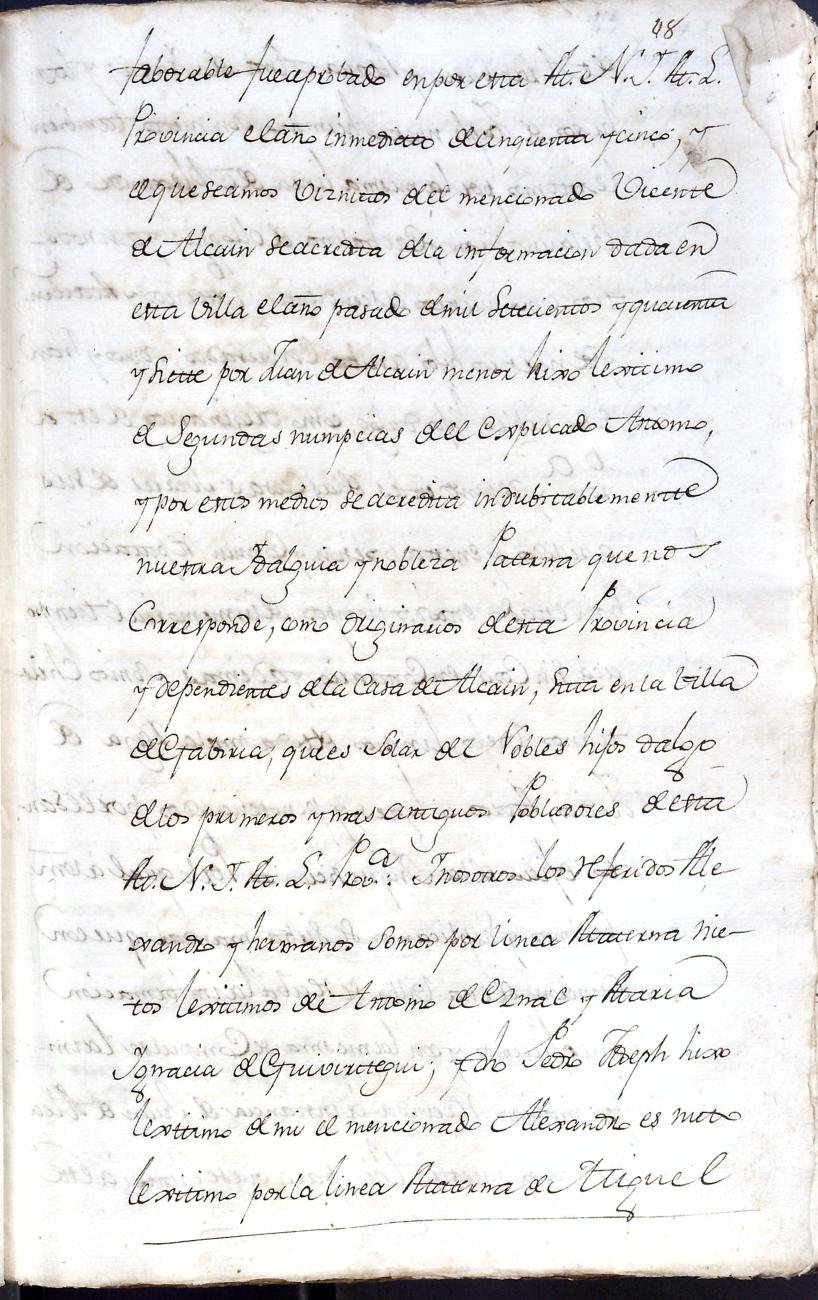 48
faborable fue aprobado en por esta M. N. I. M. L.
Provincia el año inmediato de cinquenta y cinco, y
el que seamos Viznietos de el mencionado Vicente
de Alcain se acredita de la informacion dada en
esta Villa el año pasado de mil Setecientos y quarenta
y siete por Juan de Alcain menor hixo lexitimo
de Segundas numpcias de el expücado Antonio,
y por estos medios se acredita indubitablemente
nuestra Hidalguia y nobleza Paterna que nos
Corresponde, como originarios de esta Provincia
y dependientes de la Casa de Alcain, sita en la Villa
de Gabiria, que es Solar de Nobles hijos dalgo
de los primeros y mas antiguos Pobladores de esta
M. N. I. M. L. Prov.ª: Y nosotros los referidos Ale
xandro y hermanos somos por linea Materna nie-
tos lexitimos de Antonio de Eznal y Maria
Ygnacia de Eguiviritegui; y dho Pedro Joseph hixo
lexitimo de mi el mencionado Alexandro es nieto
lexitimo por la linea Materna de Miguel